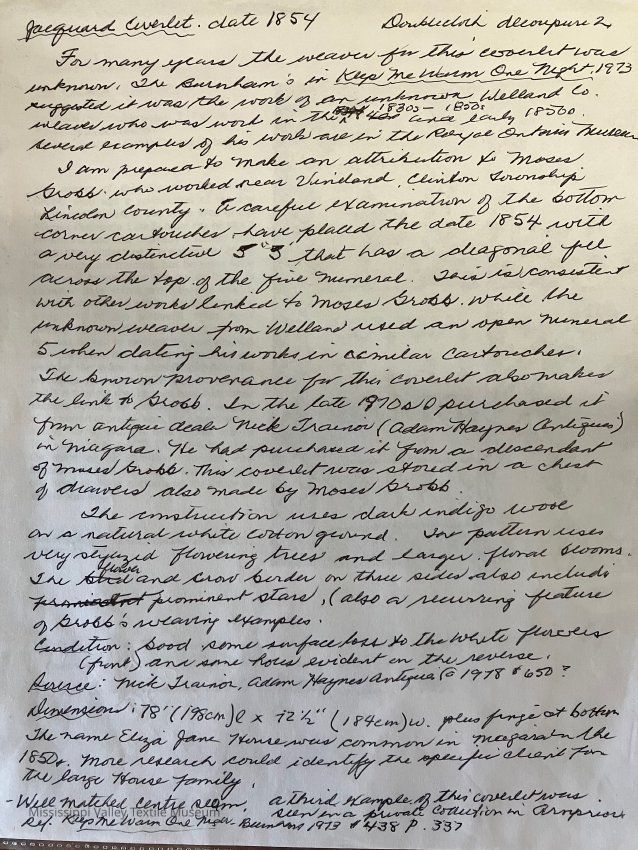 Jacquard Coverlet. date 1854 Doublecloth decoupure 2
For many years the weaver for this coverlet was
unknown. The Burnham's in Keep Me Warm One Night, 1973
suggested it was the work of an unknown Welland Co.
weaver who was work in the 1830s – 1850s and early 1850s.
Several examples of his work are in the Royal Ontario Museum
I am prepared to make an attribution to Moses
Grobb who worked near Vineland, Clinton Township
Lincoln County. A careful examination of the bottom
corner cartouches have placed the date 1854 with
a very distinctive 5 "5" that has a diagonal fill
across the top of the five numeral. This is consistent
with other works linked to Moses Grobb. while the
unknown weaver from Welland used an open numeral
5 when dating his works in similar cartouches.
The known provenance for this coverlet also makes
the link to Grobb. In the late 1970s I purchased it
from antique dealer Nick Trainor (Adam Haynes Antiques)
in Niagara. He had purchased it from a descendant
of Moses Grobb. This coverlet was stored in a chest
of drawers also made by Moses Grobb.
The construction uses dark indigo wool
on a natural white cotton ground. The pattern uses
very stylized flowering trees and larger floral blooms.
The flower and crow border on three sides also include
prominent stars, (also a recurring feature
of Grobb's weaving examples.
Condition: Good some surface loss to the white flowers
(front) and some holes evident on the reverse.
Source: Nick Trainor, Adam Haynes Antiques (@ 1978 $650?
Dimensions: 78" (198cm) l x 72½" (184cm) w. plus fringe at bottom
The name Eliza Jane House was common in Niagara in the
1850s. More research could identify the specific client from
the large House family.
- Well matched centre seam. a third example of this coverlet was
seen in a private collection in Arnprior
Ref. Keep Me Warm One Night. Burnhams 1973 # 438 P. 337
Mississippi Valley Textile Museum